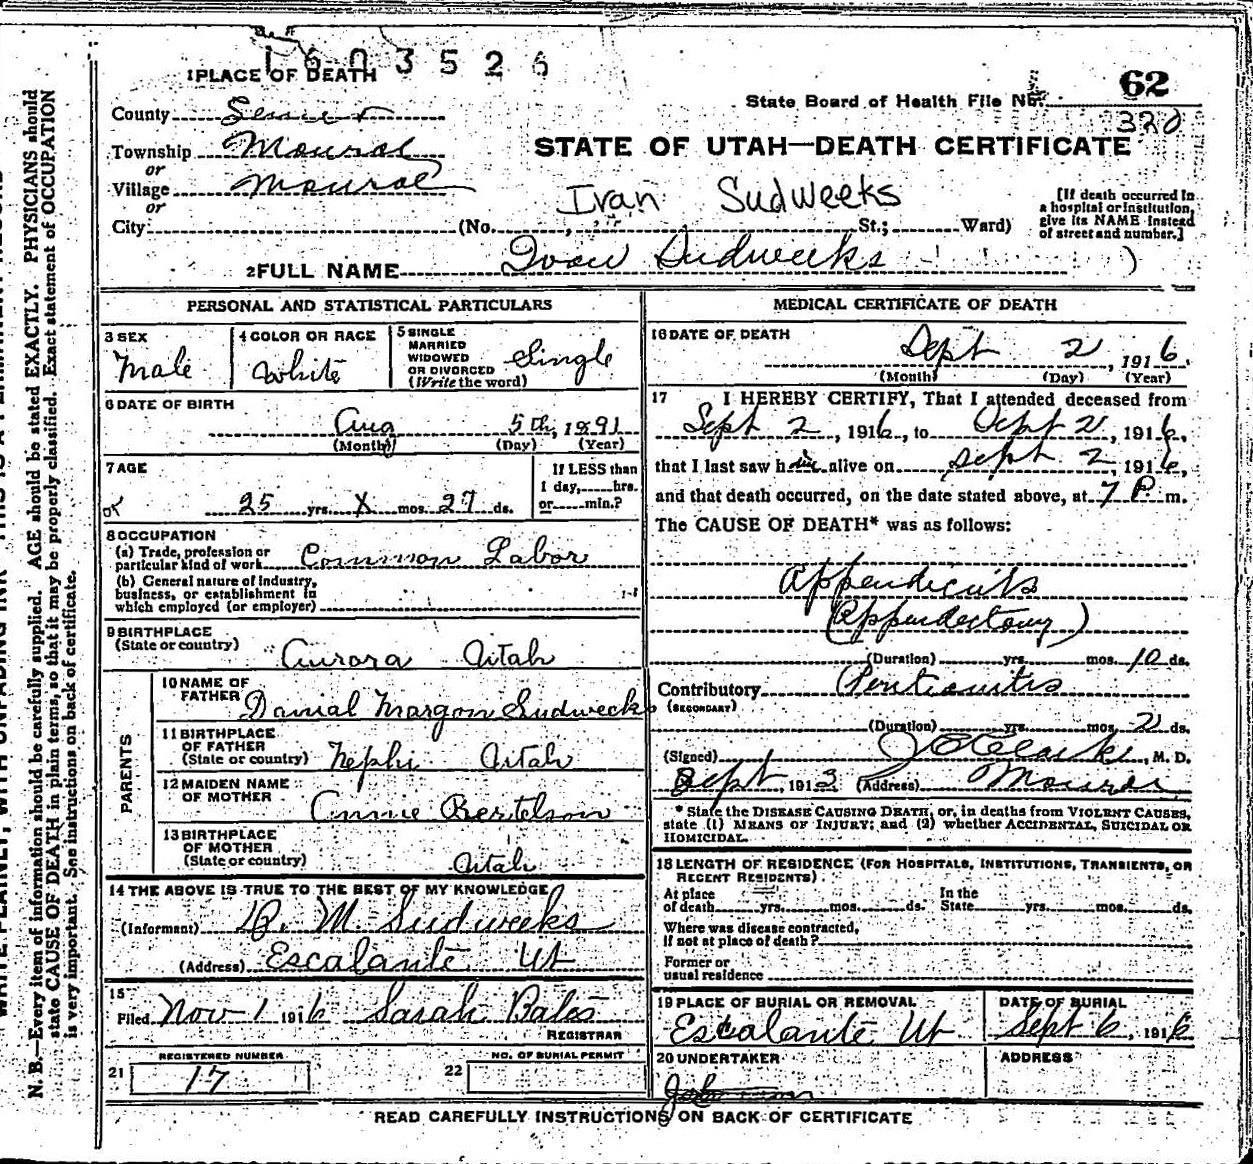 1603526
1 PLACE OF DEATH
62
State Board of Health File No.
320
County Sevier
Township Monroe
or
Village Monroe
or
STATE OF UTAH—DEATH CERTIFICATE
Ivan Sudweeks
[If death occurred in
a hospital or institution,
give its NAME instead
of street and number.]
City (No. St.; Ward)
2 FULL NAME Ivan Sudweeks
PERSONAL AND STATISTICAL PARTICULARS
3 SEX
Male
4 COLOR OR RACE
White
5 SINGLE
MARRIED
WIDOWED
OR DIVORCED
(Write the word)
Single
6 DATE OF BIRTH
Aug 5th, 1891
(Month) (Day) (Year)
7 AGE
25 yrs. X mos. 27 ds.
If LESS than
1 day, hrs.
or min.?
8 OCCUPATION
(a) Trade, profession or
particular kind of work Common Labor
(b) General nature of industry,
business, or establishment in
which employed (or employer)
9 BIRTHPLACE
(State or country)
Aurora Utah
PARENTS
10 NAME OF
FATHER Danial Margon Sudweeks
11 BIRTHPLACE
OF FATHER
(State or country) Nephi Utah
12 MAIDEN NAME
OF MOTHER
Annie Bertelson
13 BIRTHPLACE
OF MOTHER
(State or country) Utah
14 THE ABOVE IS TRUE TO THE BEST OF MY KNOWLEDGE
(Informant) D. M. Sudweeks
(Address) Escalante Ut
15
Filed Nov 1 1916 Sarah Bates
REGISTRAR
REGISTERED NUMBER
21 17
NO. OF BURIAL PERMIT
22
MEDICAL CERTIFICATE OF DEATH
16 DATE OF DEATH
Sept 2, 1916.
(Month) (Day) (Year)
17 I HEREBY CERTIFY, That I attended deceased from
Sept 2, 1916, to Sept 2, 1916,
that I last saw him alive on Sept 2, 1916,
and that death occurred, on the date stated above, at 7 P. m.
The CAUSE OF DEATH* was as follows:
Appendicitis
(Appendectomy)
(Duration) yrs. mos. 10 ds.
Contributory Peritonitis
(SECONDARY)
(Duration) yrs. mos. 2 ds.
(Signed) , M. D.
Sept, 1913 (Address) Monroe
* State the DISEASE CAUSING DEATH, or, in deaths from VIOLENT CAUSES,
state (1) MEANS OF INJURY; and (2) whether ACCIDENTAL, SUICIDAL OR
HOMICIDAL.
18 LENGTH OF RESIDENCE (FOR HOSPITALS, INSTITUTIONS, TRANSIENTS, OR
RECENT RESIDENTS)
At place
of death yrs. mos. ds.
In the
State yrs. mos. ds.
Where was disease contracted,
if not at place of death?
Former or
usual residence
19 PLACE OF BURIAL OR REMOVAL
Escalante Ut
DATE OF BURIAL
Sept 6, 1916
20 UNDERTAKER
ADDRESS
READ CAREFULLY INSTRUCTIONS ON BACK OF CERTIFICATE
N. B.—Every item of information should be carefully supplied. AGE should be stated EXACTLY. PHYSICIANS should
state CAUSE OF DEATH in plain terms, so that it may be properly classified. Exact statement of OCCUPATION
is very important. See instructions on back of certificate.